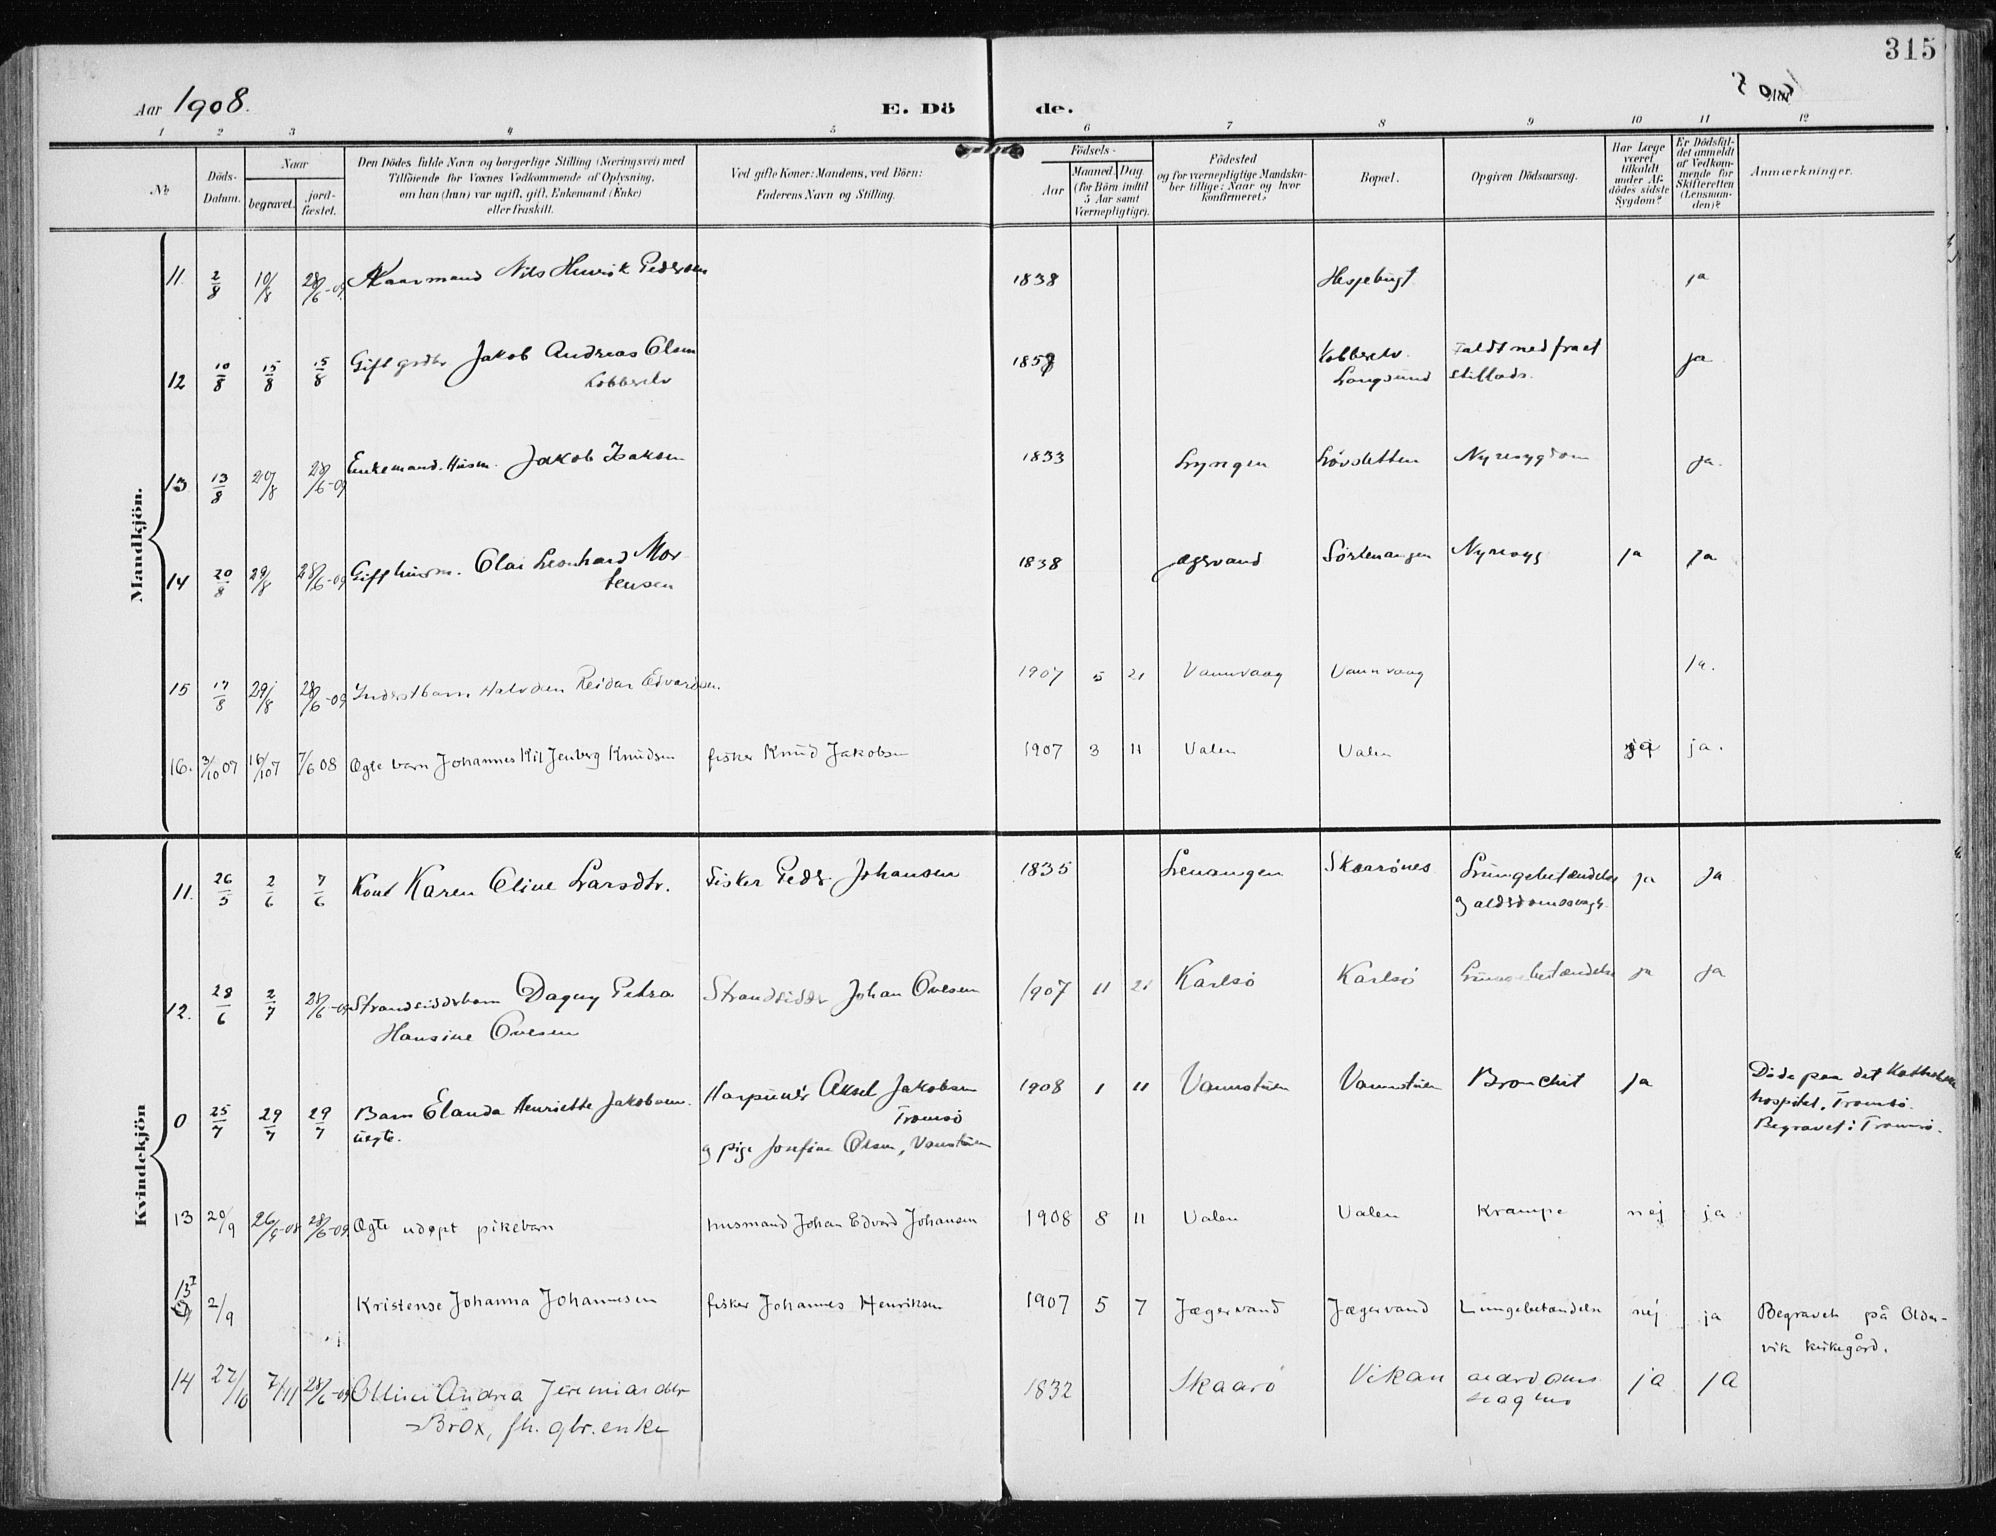 315
Aar 1908.
E. Dö de.
1 2 3 4 5 6 7 8 9 10 11 12
No
Döds-
Datum.
Naar
begravet.
jord-
fæstet.
Den Dödes fulde Navn og borgerlige Stilling (Næringsvei) med
Tilföiende for Voxnes Vedkommende af Oplysning,
om han (hun) var ugift, gift, Enkemand (Enke)
eller fraskilt.
Ved gifte Koner: Mandens, ved Börn:
Faderens Navn og Stilling.
Födsels-
Aar
Maaned. Dag.
(for Börn indtil
5 Aar samt
Værnepligtige).
Födested
og for værnepligtige Mandska-
ber tillige: Naar og hvor
konfirmeret?
Bopæl.
Opgiven Dödsaarsag.
Har Læge
været
tilkaldt
under Af-
dödes sidste
Sygdom?
Er Dödsfal-
det anmeldt
af Vedkom-
mende for
Skifteretten
(Lensman-
den)?
Anmærkninger.
Mandkjön.
11. 2/8 10/8 28/6-09 Kaarmand Nils Henrik Pedersen 1838 Hessfjord ja
12 10/8 15/8 15/8 Gift grdbr Jakob Andreas Olsen
Kobberelv 1858 Kobberelv.
Langsund Faldt ned fra et
stillads. ja
13 13/8 20/8 28/6-09 Enkemand. Husm. Jakob Isaksen 1833 Lyngen Lövsletten Nyresygdom ja.
14 20/8 29/8 28/6-09 Gift husm. Olai Leonhard Mor
tensen 1838 Jægervand Sörlenangen Nyresyg ja ja
15 17/8 29/8 28/6-09 Inderstbarn Halvdan Reidar Edvardsen. 1907 5 21 Vannvaag Vannvaag ja.
16. 3/10 07 16/10 7 7/6 08 Ægte barn Johannes Kil Jenberg Knudsen fisker Knud Jakobsen 1907 3 11 Valen Valen ja ja.
Kvindekjön
11. 26/5 2/6 7/6 Kone Karen Eline Larsdtr. Fisker Peder Johansen 1835 Lenangen Skaarönes Lungebetændelse
og alderdomssvagh. ja ja
12. 28/6 2/7 28/6-09 Strandsidderbarn Dagny Petra
Hansine Ovesen Strandsidder Johan Ovesen 1907 11 21 Karlsö Karlsö Lungebetændelse ja ja
0 25/7 29/7 29/7 Barn Elanda Henriette Jakobsen.
uegte. Harpuner Aksel Jakobsen
Tromsö
og pige Josefine Olsen, Vanstuen 1908 1 11 Vannstuen Vannstuen Bronchit ja Döde paa det Katholske
hospital, Tromsö.
Begravet i Tromsö.
13 20/9 26/9-08 28/6-09 Ægte udøpt pikebarn husmand Johan Edvard Johansen 1908 8 11 Valen Valen Krampe nej ja
13 2/9 Kristense Johanna Johannesen fisker Johannes Henriksen 1907 5 7 Jægervand Jægervand Lungebetændelse nej ja Begravet på Older-
vik kirkegård.
14 27/10 7/11 28/6-09 Olline Andrea Jeremiasdtr
Brox, fh. gbr. enke 1832 Skaarö Vikan ja ja